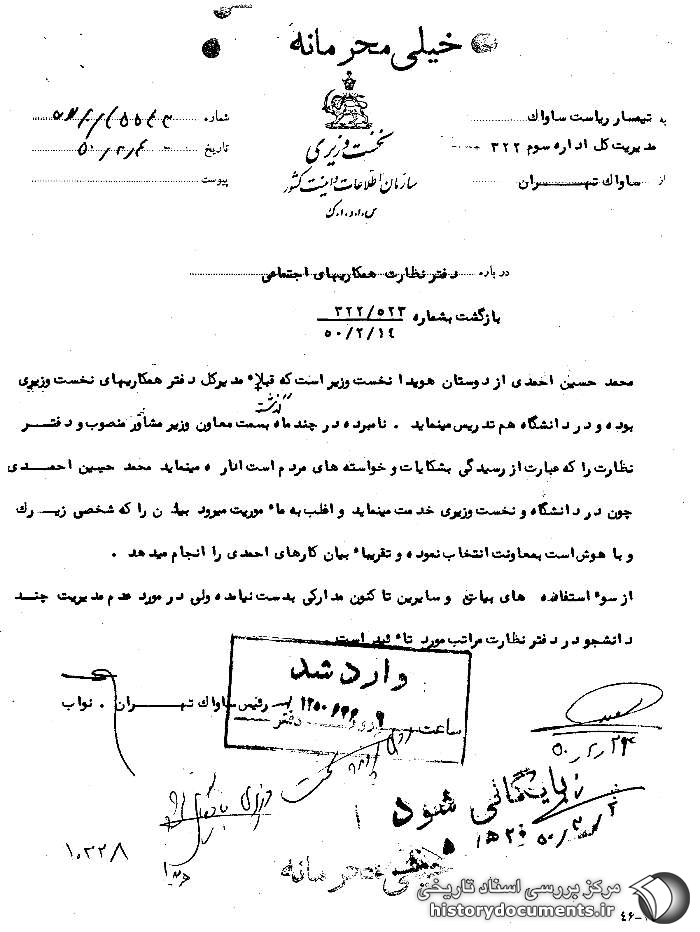 خیلی محرمانه
به تیمسار ریاست ساواک
مدیریت کل اداره سوم ۳۲۲
از ساواک تهـــران
نخست وزیری
سازمان اطلاعات و امنیت کشور
س.ا.و.ا.ک
شماره
تاریخ
پیوست
درباره دفتر نظارت همکاریهای اجتماعی
بازگشت بشماره ۳۲۲/۵۲۳
۵۰/۲/۱۴
محمد حسین احمدی از دوستان هویدا نخست وزیر است که قبلاً مدیرکل دفتر همکاریهای نخست وزیری
بوده و در دانشگاه هم تدریس مینماید . نامبرده در چند ماه گذشته بسمت معاون وزیر مشاور منصوب و دفتـــر
نظارت را که عبارت از رسیدگی بشکایات و خواسته های مردم است اداره مینماید محمد حسین احمــدی
چون در دانشگاه و نخست وزیری خدمت مینماید و اغلب به مأموریت میرود را که شخصی زیــرک
و با هوش است بمعاونت انتخاب نموده و تقریباً بیان کارهای احمدی را انجام میدهد .
از سوء استفاده های و سایرین تا کنون مدارکی بدست نیامده ولی در مورد عدم مدیریت چنـد
دانشجو در دفتر نظارت مراتب مورد تائید است .
رئیس ساواک تهـــران . نواب
وارد شد
ساعت
دفتر
بایگانی شود
۱۰۲۲۸
خیلی محرمانه
مرکز بررسی اسناد تاریخی
historydocuments.ir